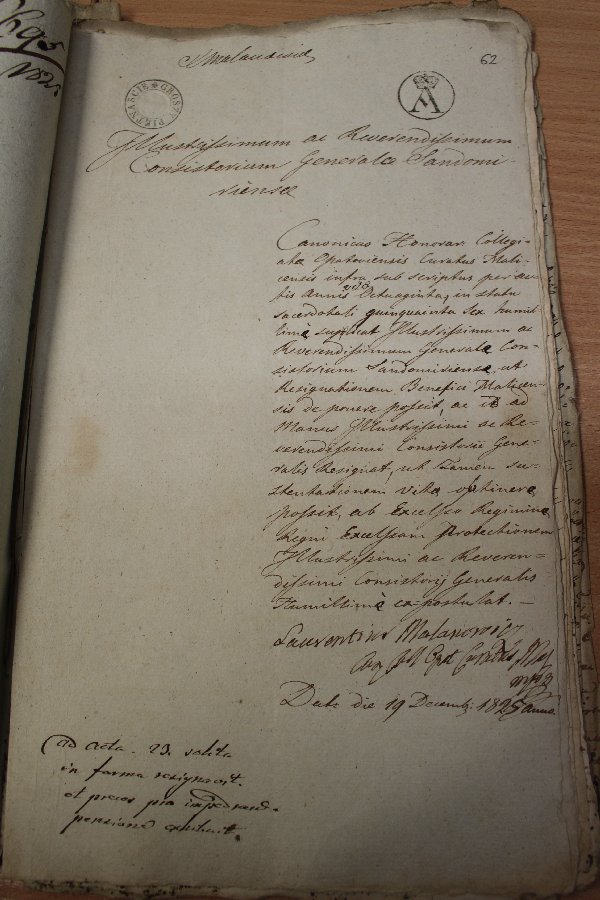 62
PIETNAŚCIE GROSZY
Illustrissimum ac Reverendissimum
Consistorium Generale Sandomi-
riense
Canonicus Honorar: Collegi-
atæ Opatoviensis Curatus Malic-
censis infra sub scriptus per ac-
tis Annis vitæ Octuaginta, in statu
sacerdotali quinquainta sex humil-
limè supplicat Illustrissimum ac
Reverendissimum Generale Con-
sistorium Sandomiriense, ut
Resignationem Benefici Malicen-
sis de ponere possit, ac ad
Manus Illustrissimi ac Re-
verendissimi Consistorii Gene-
ralis Resignat, ut Tamen su-
stentationem vitæ obtinere
possit, ab Excelso Regimine
Regni Excelsam Protectionem
Illustrissimi ac Reveren-
dissimi Consistorij Generalis
Humillimè ex-postulat. —
Laurentius
Can Coll Opat Curatus
mpp
Dat: die 19 Decemb: 1825 anno
ad acta. 23. solita
in forma resignavit.
et preces pro impetranda
pensione exhibuit.